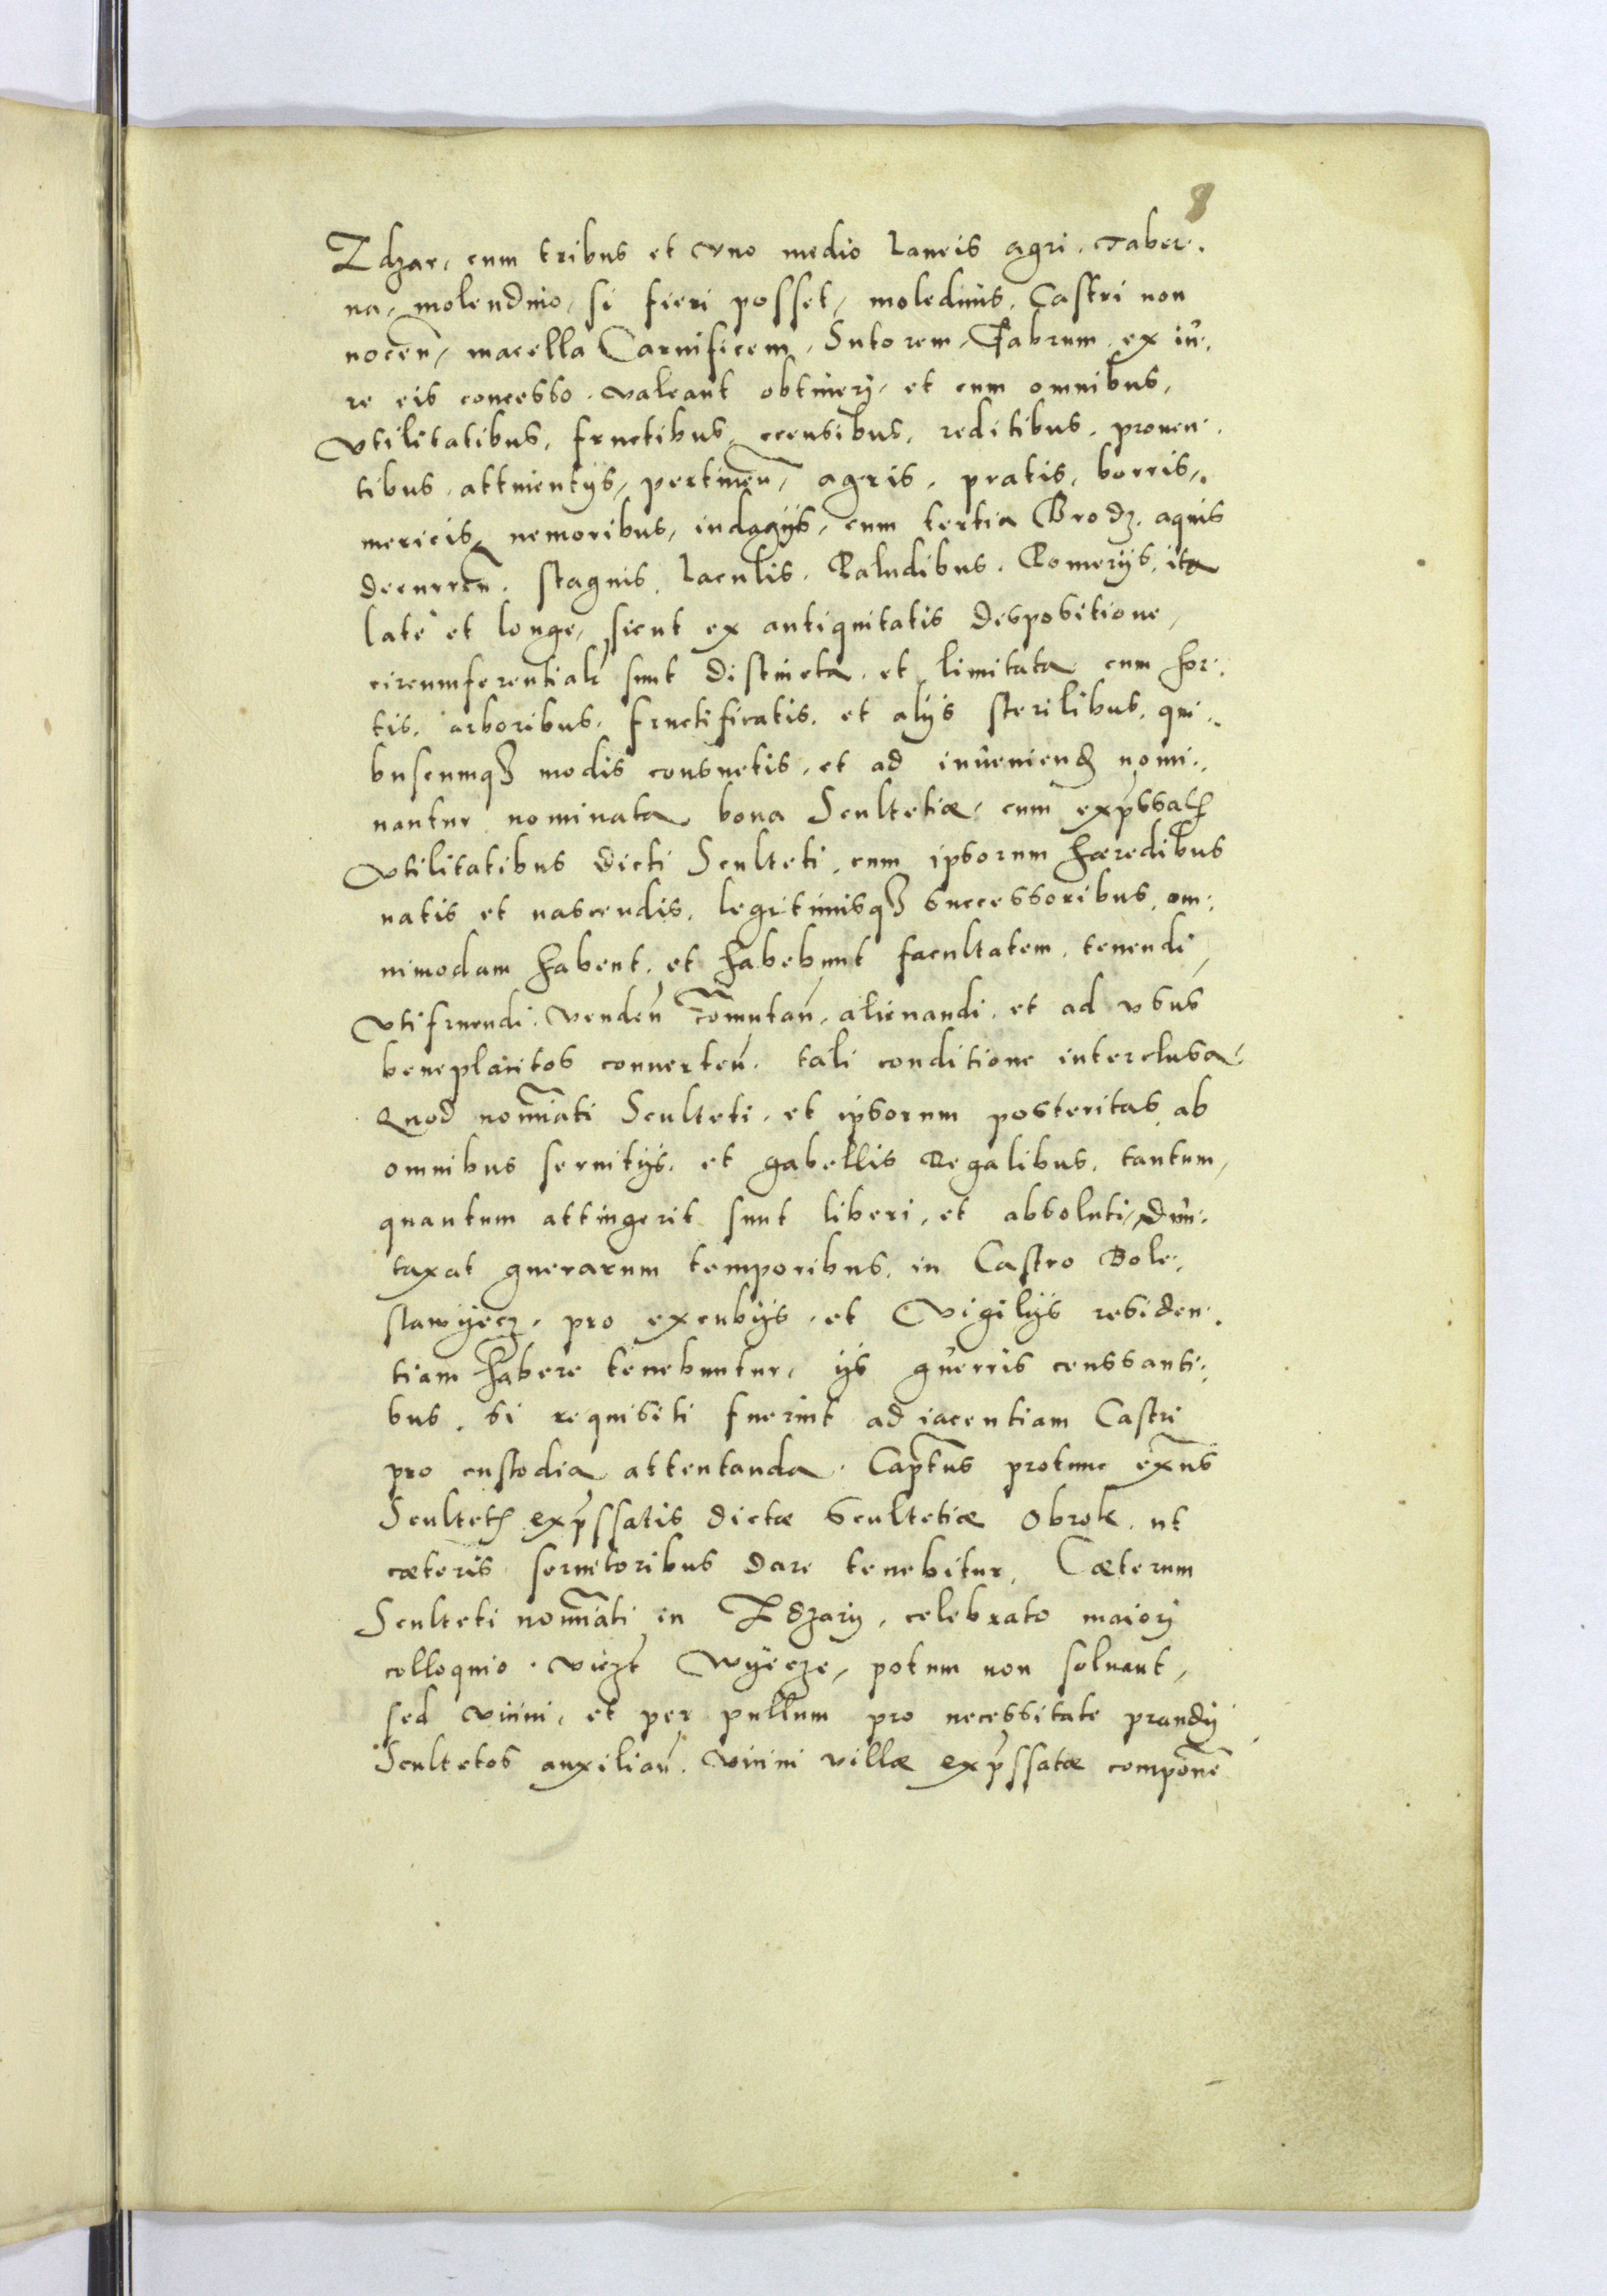 8
Zdzar, cum tribus et vno medio laneis agri. Taber.
na, molendino, si fieri posset, moledinis, Castri non
nocen̄, macella Carnificem, Sutorem, Fabrum, ex iu.
re eis concesso. valeant obtinerj, et cum omnibus,
vtilitatibus, fructibus, ccensibus, reditibus, prouen.
tibus, attinentijs, pertinen̄, agris, pratis, borris,
mericis, nemoribus, indagijs, cum tertia Brodz, aquis
decurren̄. stagnis, laculis, Paludibus, Pomerijs, ita
late et longe, sicut ex antiquitatis despositione,
circumferentialr sunt distincta, et limitata, cum hor.
tis, arboribus, fructificatis, et alijs sterilibus, qui.
buscumqȝ modis consuetis, et ad inueniend nomi.
nantur nominata, bona Scultetiæ, cum exp̄ssat
vtilitatibus dicti Sculteti, cum ipsorum hæredibus
natis et nascendis, legitimisqȝ successoribus, om.
nimodam habent, et habebunt facultatem, tenendi,
vtifruendi, venden̄ com̄utan̄, alienandi, et ad vsus
beneplacitos conuerten̄. tali conditione interclusa,
Quod nom̄iati Sculteti, et ipsorum posteritas, ab
omnibus seruitijs, et gabellis Regalibus, tantum,
quantum attingerit sunt liberi, et absoluti, Dun.
taxat guerarum temporibus, in Castro Bole.
stawyecz, pro excubijs, et vigilijs residen.
tiam habere tenebuntur, ijs guerris censsanti.
bus, si requisiti fuerint ad iacentiam Castri
pro custodia attentanda. Capt̄us protunc ex̄ns
Scultet exp̄ssatis dictæ Scultetiæ Obrok, ut
cæteris seruitoribus dare tenebitur, Cæterum
Sculteti nom̄iati in Zdzary, celebrato maiorj
colloquio. Wyecze, potum non soluant,
sed vicini, et per pullum pro necessitate prandij
Scultetos auxilian̄. vicini villæ exp̄ssatæ componē